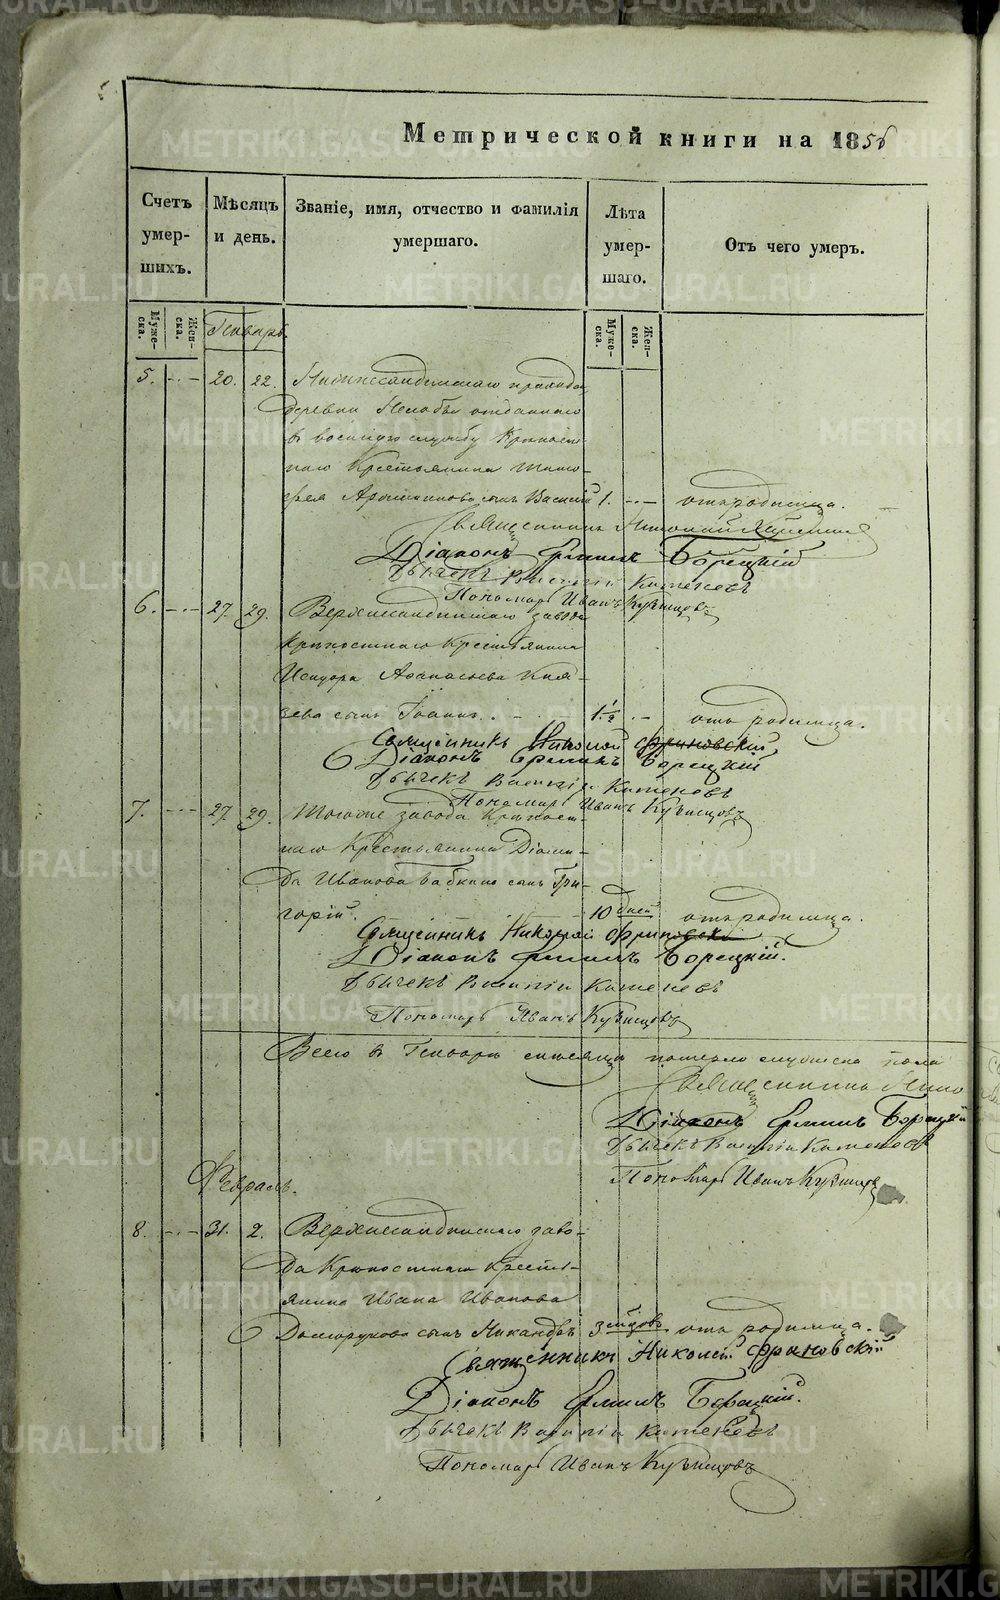 METRIKI.GASO-URAL.RU
Метрической книги на 1856
Счетъ умер- шихъ.
Мѣсяцъ и день.
Званіе, имя, отчество и фамилія умершаго.
Лѣта умер- шаго.
Отъ чего умеръ.
Муже- ска. Жен- ска.
Генварь.
Муже- ска. Жен- ска.
5. 20. 22. завода
деревни отданнаго
въ военную службу Крѣпост-
наго Крестьянина Тимо-
фея сынъ Василій 1. отъ родимца.
Священникъ Николай
Діаконъ Ермилъ Борецкій
Дьячекъ Василій Катеневъ
Пономарь Иванъ Кузнецовъ
6. 27. 29. завода
Крѣпостнаго Крестьянина
Исидора Аѳанасьева Кня-
зева сынъ Іоаннъ. 1 1/2 отъ родимца.
Священникъ Николай Фриновскій
Діаконъ Ермилъ Борецкій
Дьячекъ Василій Катеневъ
Пономарь Иванъ Кузнецовъ
7. 27. 29. Тогоже завода Крѣпост-
наго Крестьянина Діоми-
да Иванова Бабкина сынъ Гри-
горій. 10 дней отъ родимца.
Священникъ Николай Фриновскій
Діаконъ Ермилъ Борецкій.
Дьячекъ Василій Катеневъ
Пономарь Иванъ Кузнецовъ
Всего въ Генваре месяце померло мужеска пола
Священникъ Нико
Діаконъ Ермилъ Борецкій
Дьячекъ Василій Катеневъ
Пономарь Иванъ Кузнецовъ
Февраль.
8. 31. 2. заво-
да Крѣпостнаго Кресть-
янина Ивана Иванова
Долгорукова сынъ Никандръ 3 отъ родимца.
Священникъ Николай Фриновскій
Діаконъ Ермилъ Борецкій.
Дьячекъ Василій Катеневъ
Пономарь Иванъ Кузнецовъ